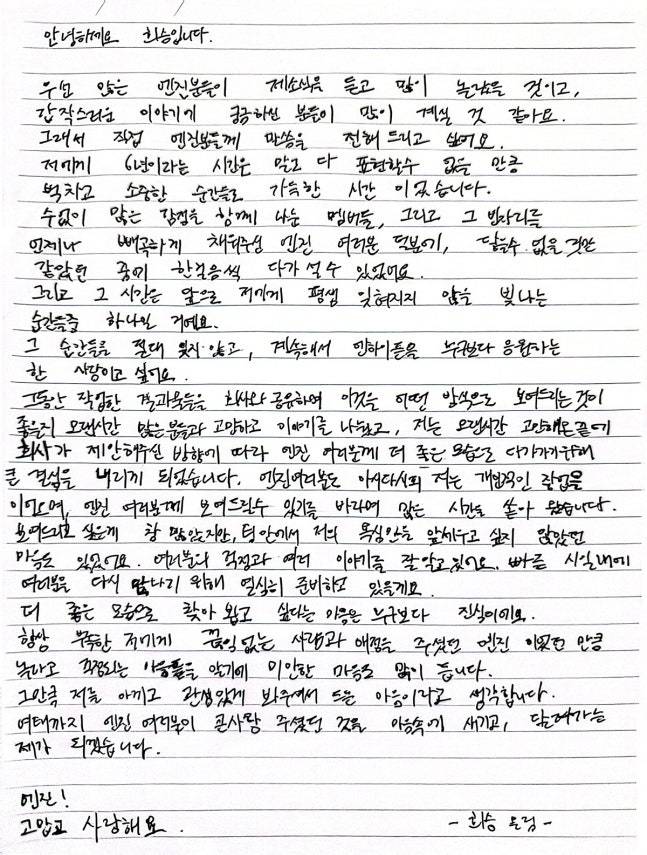 안녕하세요 희승입니다.
우선 많은 엔진분들이 제소식을 듣고 많이 놀랐을 것이고,
갑작스러운 이야기에 궁금하신 분들이 많이 계실 것 같아요.
그래서 직접 엔진분들께 말씀을 전해 드리고 싶어요.
저에게 6년이라는 시간은 말로 다 표현할수 없을 만큼
벅차고 소중한 순간들로 가득한 시간 이었습니다.
수없이 많은 감정을 함께 나눈 멤버들, 그리고 그 빈자리를
언제나 빼곡하게 채워주신 엔진 여러분 덕분에, 닿을수 없을 것만
같았던 꿈에 한걸음씩 다가 설 수 있었어요.
그리고 그 시간은 앞으로 저에게 평생 잊혀지지 않을 빛나는
순간들중 하나일 거예요.
그 순간들을 절대 잊지 않고, 계속해서 엔하이픈을 누구보다 응원하는
한 사람이고 싶어요.
그동안 작업한 결과물들을 회사와 공유하며 이것을 어떤 방식으로 보여드리는것이
좋을지 오랜시간 많은분들과 고민하고 이야기를 나눴고, 저는 오랜시간 고민해온끝에
회사가 제안해주신 방향에 따라 엔진 여러분께 더 좋은 모습으로 다가가기위해
큰 결심을 내리게 되었습니다. 엔진여러분도 아시다시피 저는 개인적인 작업을
이어오며, 엔진 여러분께 보여드릴수 있기를 바라며 많은 시간을 쏟아 왔습니다.
보여드리고 싶은게 참 많았지만, 팀 안에서 저의 욕심만을 앞세우고 싶지 않았던
마음도 있었어요. 여러분의 걱정과 여러 이야기를 잘 알고 있어요. 빠른 시일내에
여러분을 다시 만나기 위해 열심히 준비하고 있을게요.
더 좋은 모습으로 찾아 뵙고 싶다는 마음은 누구보다 진심이에요.
항상 부족한 저에게 끊임 없는 사랑과 애정을 주셨던 엔진 이었던 만큼
놀라고 걱정되는 마음들을 알기에 미안한 마음도 많이 듭니다.
그만큼 저를 아끼고 관심있게 봐주셔서 드는 마음이라고 생각합니다.
여태까지 엔진 여러분이 큰사랑 주셨던 것을 마음속에 새기고, 달려가는
제가 되겠습니다.
엔진!
고맙고 사랑해요. - 희승 드림 -